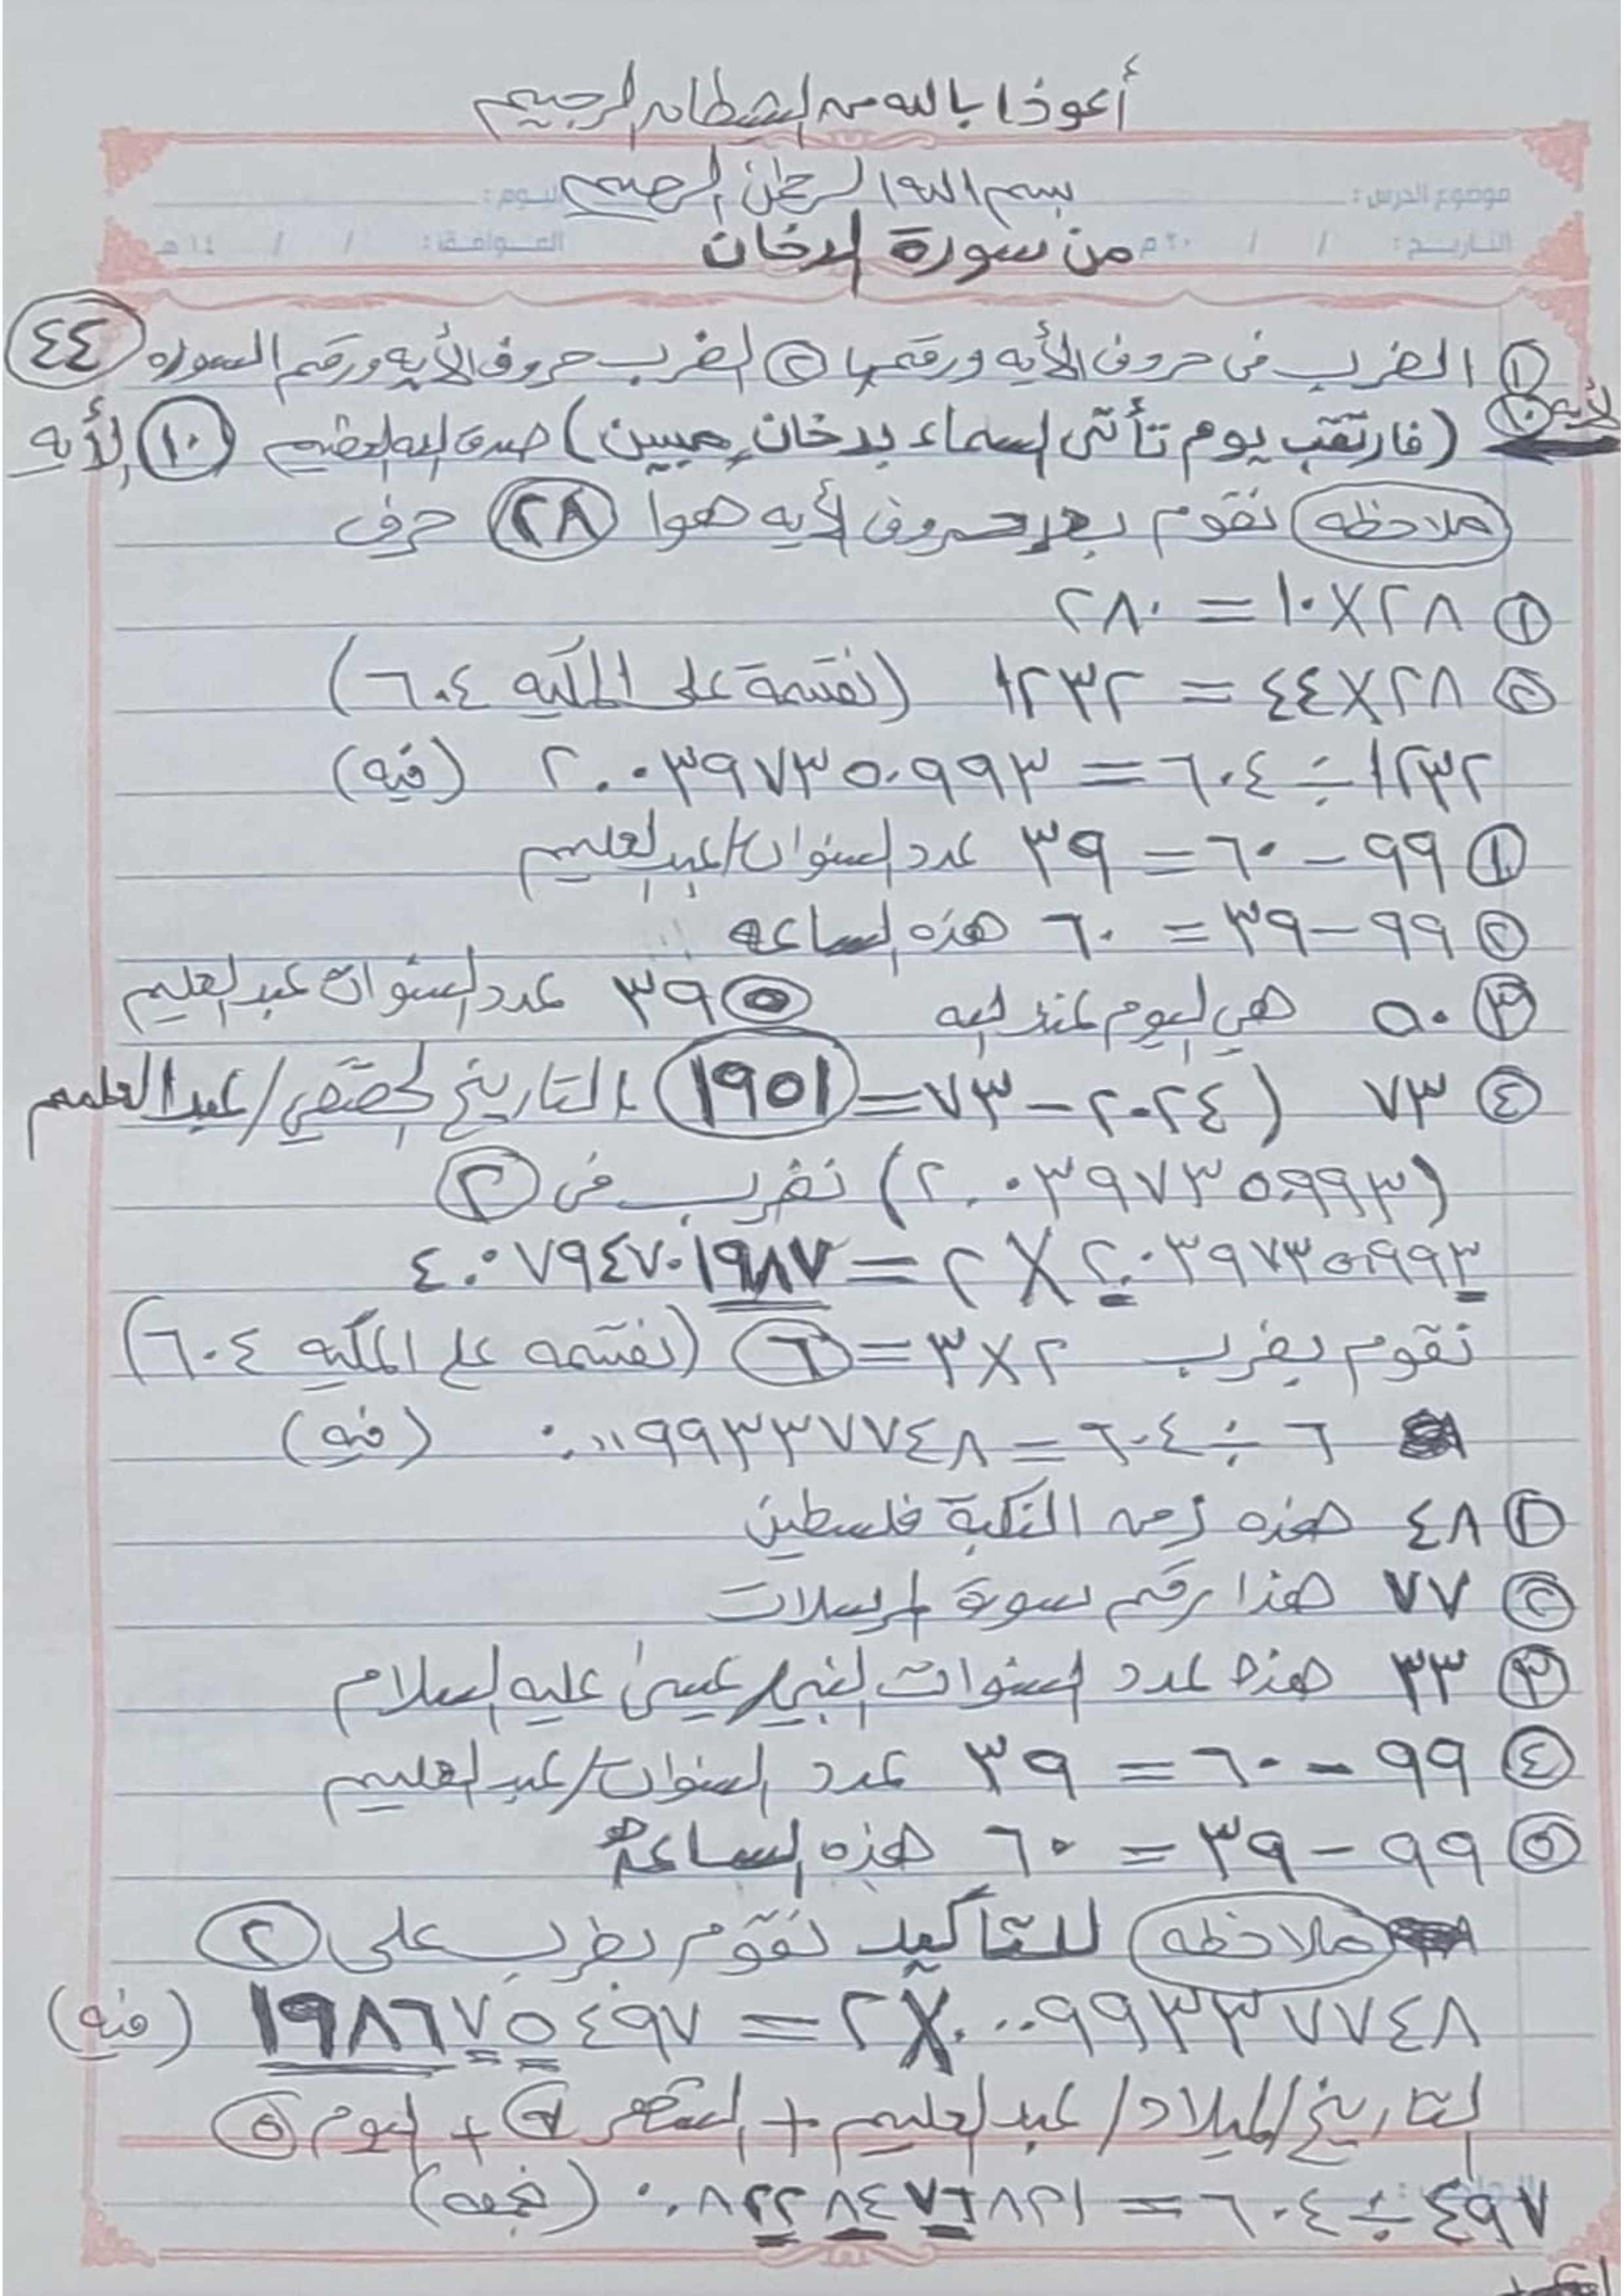 أعوذا بالله من الشطان الرجيم
بسم الله الرحمن الرحيم
موضوع الدرس : اليوم :
التاريخ : / / ٢٠ م الموافق : / / ١٤ هـ
من سورة الدخان
١ الضرب في حروف الأيه ورقمها ٢ الضرب حروف الأيه ورقم السوره ٤٤
الأيه ١٠ (فارتقب يوم تأتى السماء بدخان مبين) صدق الله العظيم ١٠ الأيه
ملاحظه نقوم بعد حروف الأيه هوا ٢٨ حرف
١ ٢٨ X ١٠ = ٢٨٠
٢ ٢٨ X ٤٤ = ١٢٣٢ (نقسمة على المكيه ٦٠٤)
١٢٣٢ ÷ ٦٠٤ = ٢.٠٣٩٧٣٥٠٩٩٣ (فيه)
١ ٩٩ – ٦٠ = ٣٩ عدد السنوات/عبدالعليم
٢ ٩٩ – ٣٩ = ٦٠ هذه الساعه
٣ ٥٠ هي اليوم عند الله ٥ ٣٩ عدد السنوات عبدالعليم
٤ ٧٣ (٢٠٢٤ – ٧٣ = ١٩٥١ التاريخ الحقيقي/عبدالعليم
(٢.٠٣٩٧٣٥٠٩٩٣) نضرب في ٢
٢.٠٣٩٧٣٥٠٩٩٣ X ٢ = ٤.٠٧٩٤٧٠١٩٨٧
نقوم بضرب ٢ X ٣ = ٦ (نقسمه على المكيه ٦٠٤)
٦ ÷ ٦٠٤ = ٠.٠٠٩٩٣٣٧٧٤٨ (فيه)
١ ٤٨ هذه زمن النكبة فلسطين
٢ ٧٧ هذا رقم سورة المرسلات
٣ ٣٣ هذه عدد السنوات النبي/عيسى عليه السلام
٤ ٩٩ – ٦٠ = ٣٩ عدد السنوات/عبدالعليم
٥ ٩٩ – ٣٩ = ٦٠ هذه الساعه
ملاحظه للتاكيد نقوم بضرب على ٢
٠.٠٠٩٩٣٣٧٧٤٨ X ٢ = ١٩٨٦٧٥٤٩٧ (فيه)
التاريخ/الميلاد/عبدالعليم + الشهر ٧ + اليوم ٥
٤٩٧ ÷ ٦٠٤ = ٠.٨٢٢٨٤٧٦٨٢١